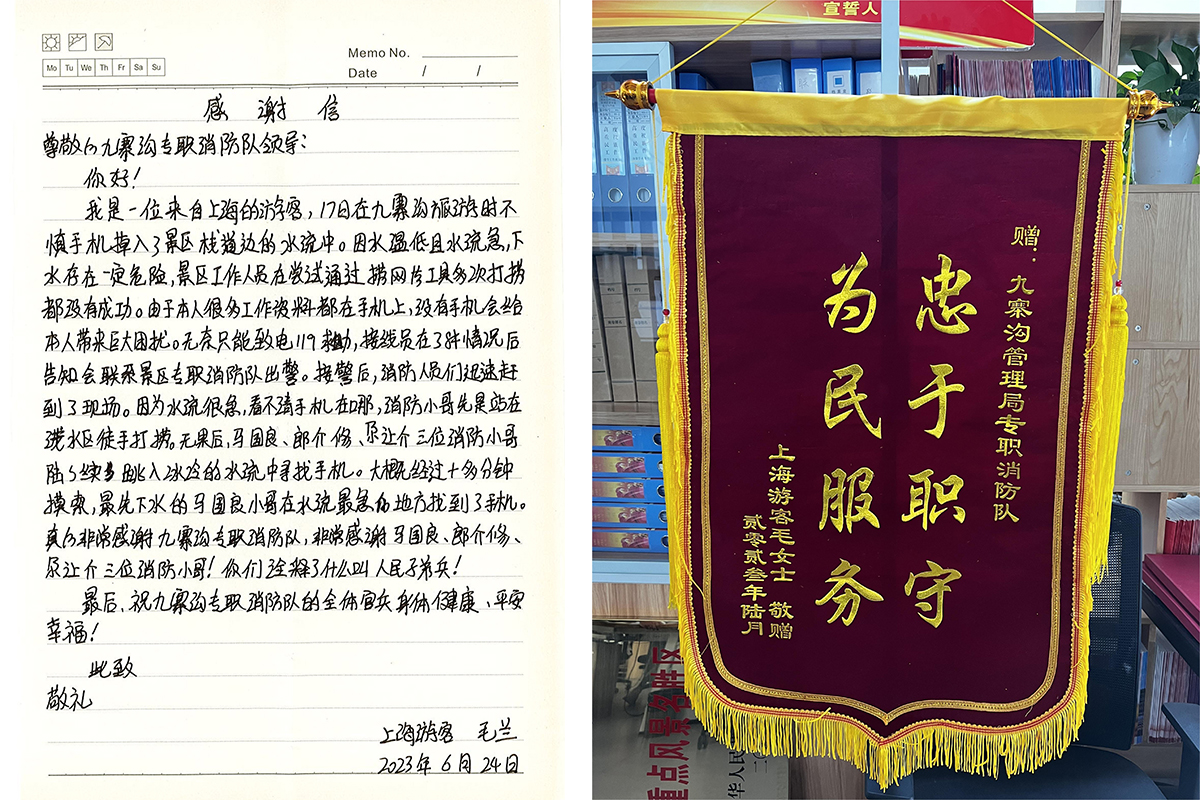 Memo No.
Date / /
Mo Tu We Th Fr Sa Su
感 谢 信
尊敬的九寨沟专职消防队领导:
你好!
我是一位来自上海的游客,17日在九寨沟旅游时不
慎手机掉入了景区栈道边的水流中。因水温低且水流急,下
水存在一定危险,景区工作人员在尝试通过捞网等工具多次打捞
都没有成功。由于本人很多工作资料都在手机上,没有手机会给
本人带来巨大困扰。无奈只能致电119求助,接线员在了解情况后
告知会联系景区专职消防队出警。接警后,消防人员们迅速赶
到了现场。因为水流很急,看不清手机在哪,消防小哥先是站在
浅水区徒手打捞。无果后,马国良、郎介修、尕让介三位消防小哥
陆续跳入冰冷的水流中寻找手机。大概经过十多分钟
摸索,最先下水的马国良小哥在水流最急的地方找到了手机。
真的非常感谢九寨沟专职消防队,非常感谢马国良、郎介修、
尕让介三位消防小哥!你们诠释了什么叫人民子弟兵!
最后,祝九寨沟专职消防队的全体官兵身体健康、平安
幸福!
此致
敬礼
上海游客 毛兰
2023年6月24日
宣誓人
赠:九寨沟管理局专职消防队
忠于职守
为民服务
上海游客毛女士 敬赠
贰零贰叁年陆月
重点风景名胜区
华人民